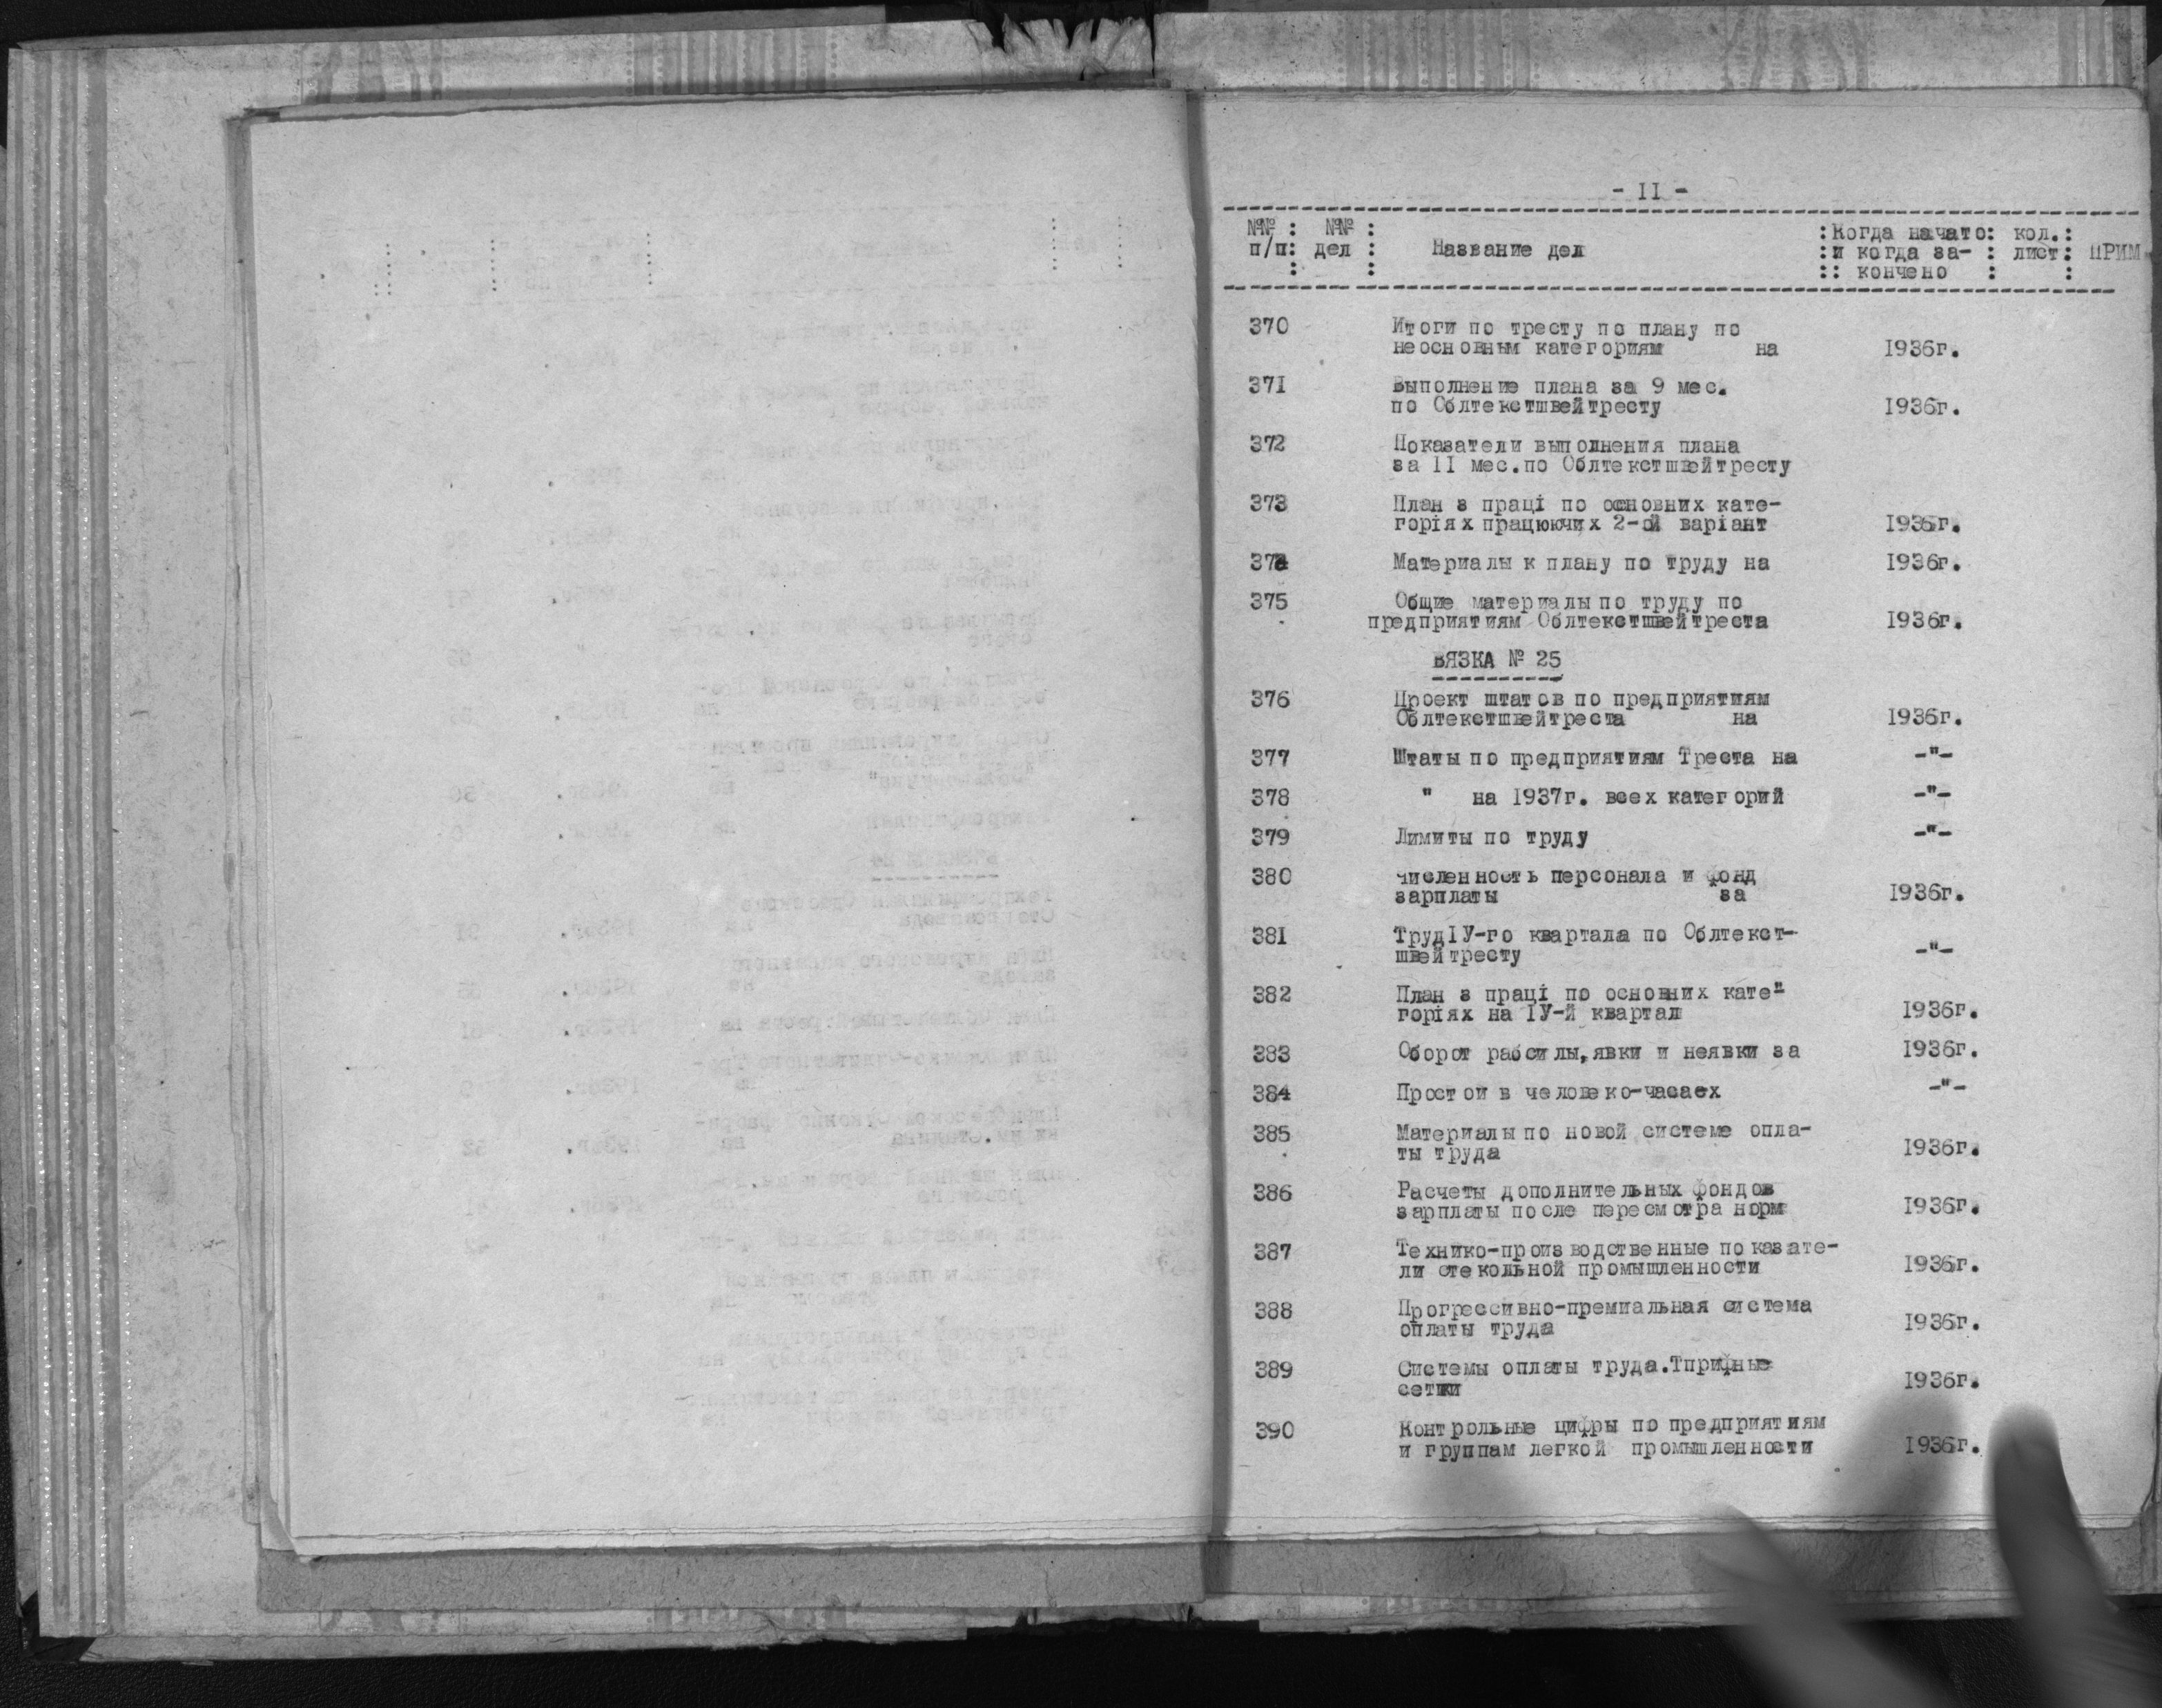 - II -
№№ : №№ : :Когда начато: кол.:
п/п: дел : Название дел :и когда за- : лист: ПРИМ
: : :: кончено : :
370 Итоги по тресту по плану по
неосновным категориям на 1936г.
371 Выполнение плана за 9 мес.
по Облтекстшвейтресту 1936г.
372 Показатели выполнения плана
за II мес.по Облтекстшвейтресту
373 План з працi по основних кате-
горiях працюючих 2-ой варiант 1936г.
374 Материалы к плану по труду на 1936г.
375 Общие материалы по труду по
предприятиям Облтекстшвейтреста 1936г.
ВЯЗКА № 25
376 Проект штатов по предприятиям
Облтекстшвейтреста на 1936г.
377 Штаты по предприятиям Треста на -"-
378 " на 1937г. всех категорий -"-
379 Лимиты по труду -"-
380 Численность персонала и фонд
зарплаты за 1936г.
381 Труд IУ-го квартала по Облтекст-
швейтресту -"-
382 План з працi по основних кате-
горiях на IУ-й квартал 1936г.
383 Оборот рабсилы,явки и неявки за 1936г.
384 Простои в человеко-часаех -"-
385 Материалы по новой системе опла-
ты труда 1936г.
386 Расчеты дополнительных фондов
зарплаты после пересмотра норм 1936г.
387 Технико-производственные показате-
ли стекольной промышленности 1936г.
388 Прогрессивно-премиальная система
оплаты труда 1936г.
389 Системы оплаты труда.Тприфные
сетки 1936г.
390 Контрольные цифры по предприятиям
и группам легкой промышленности 1936г.